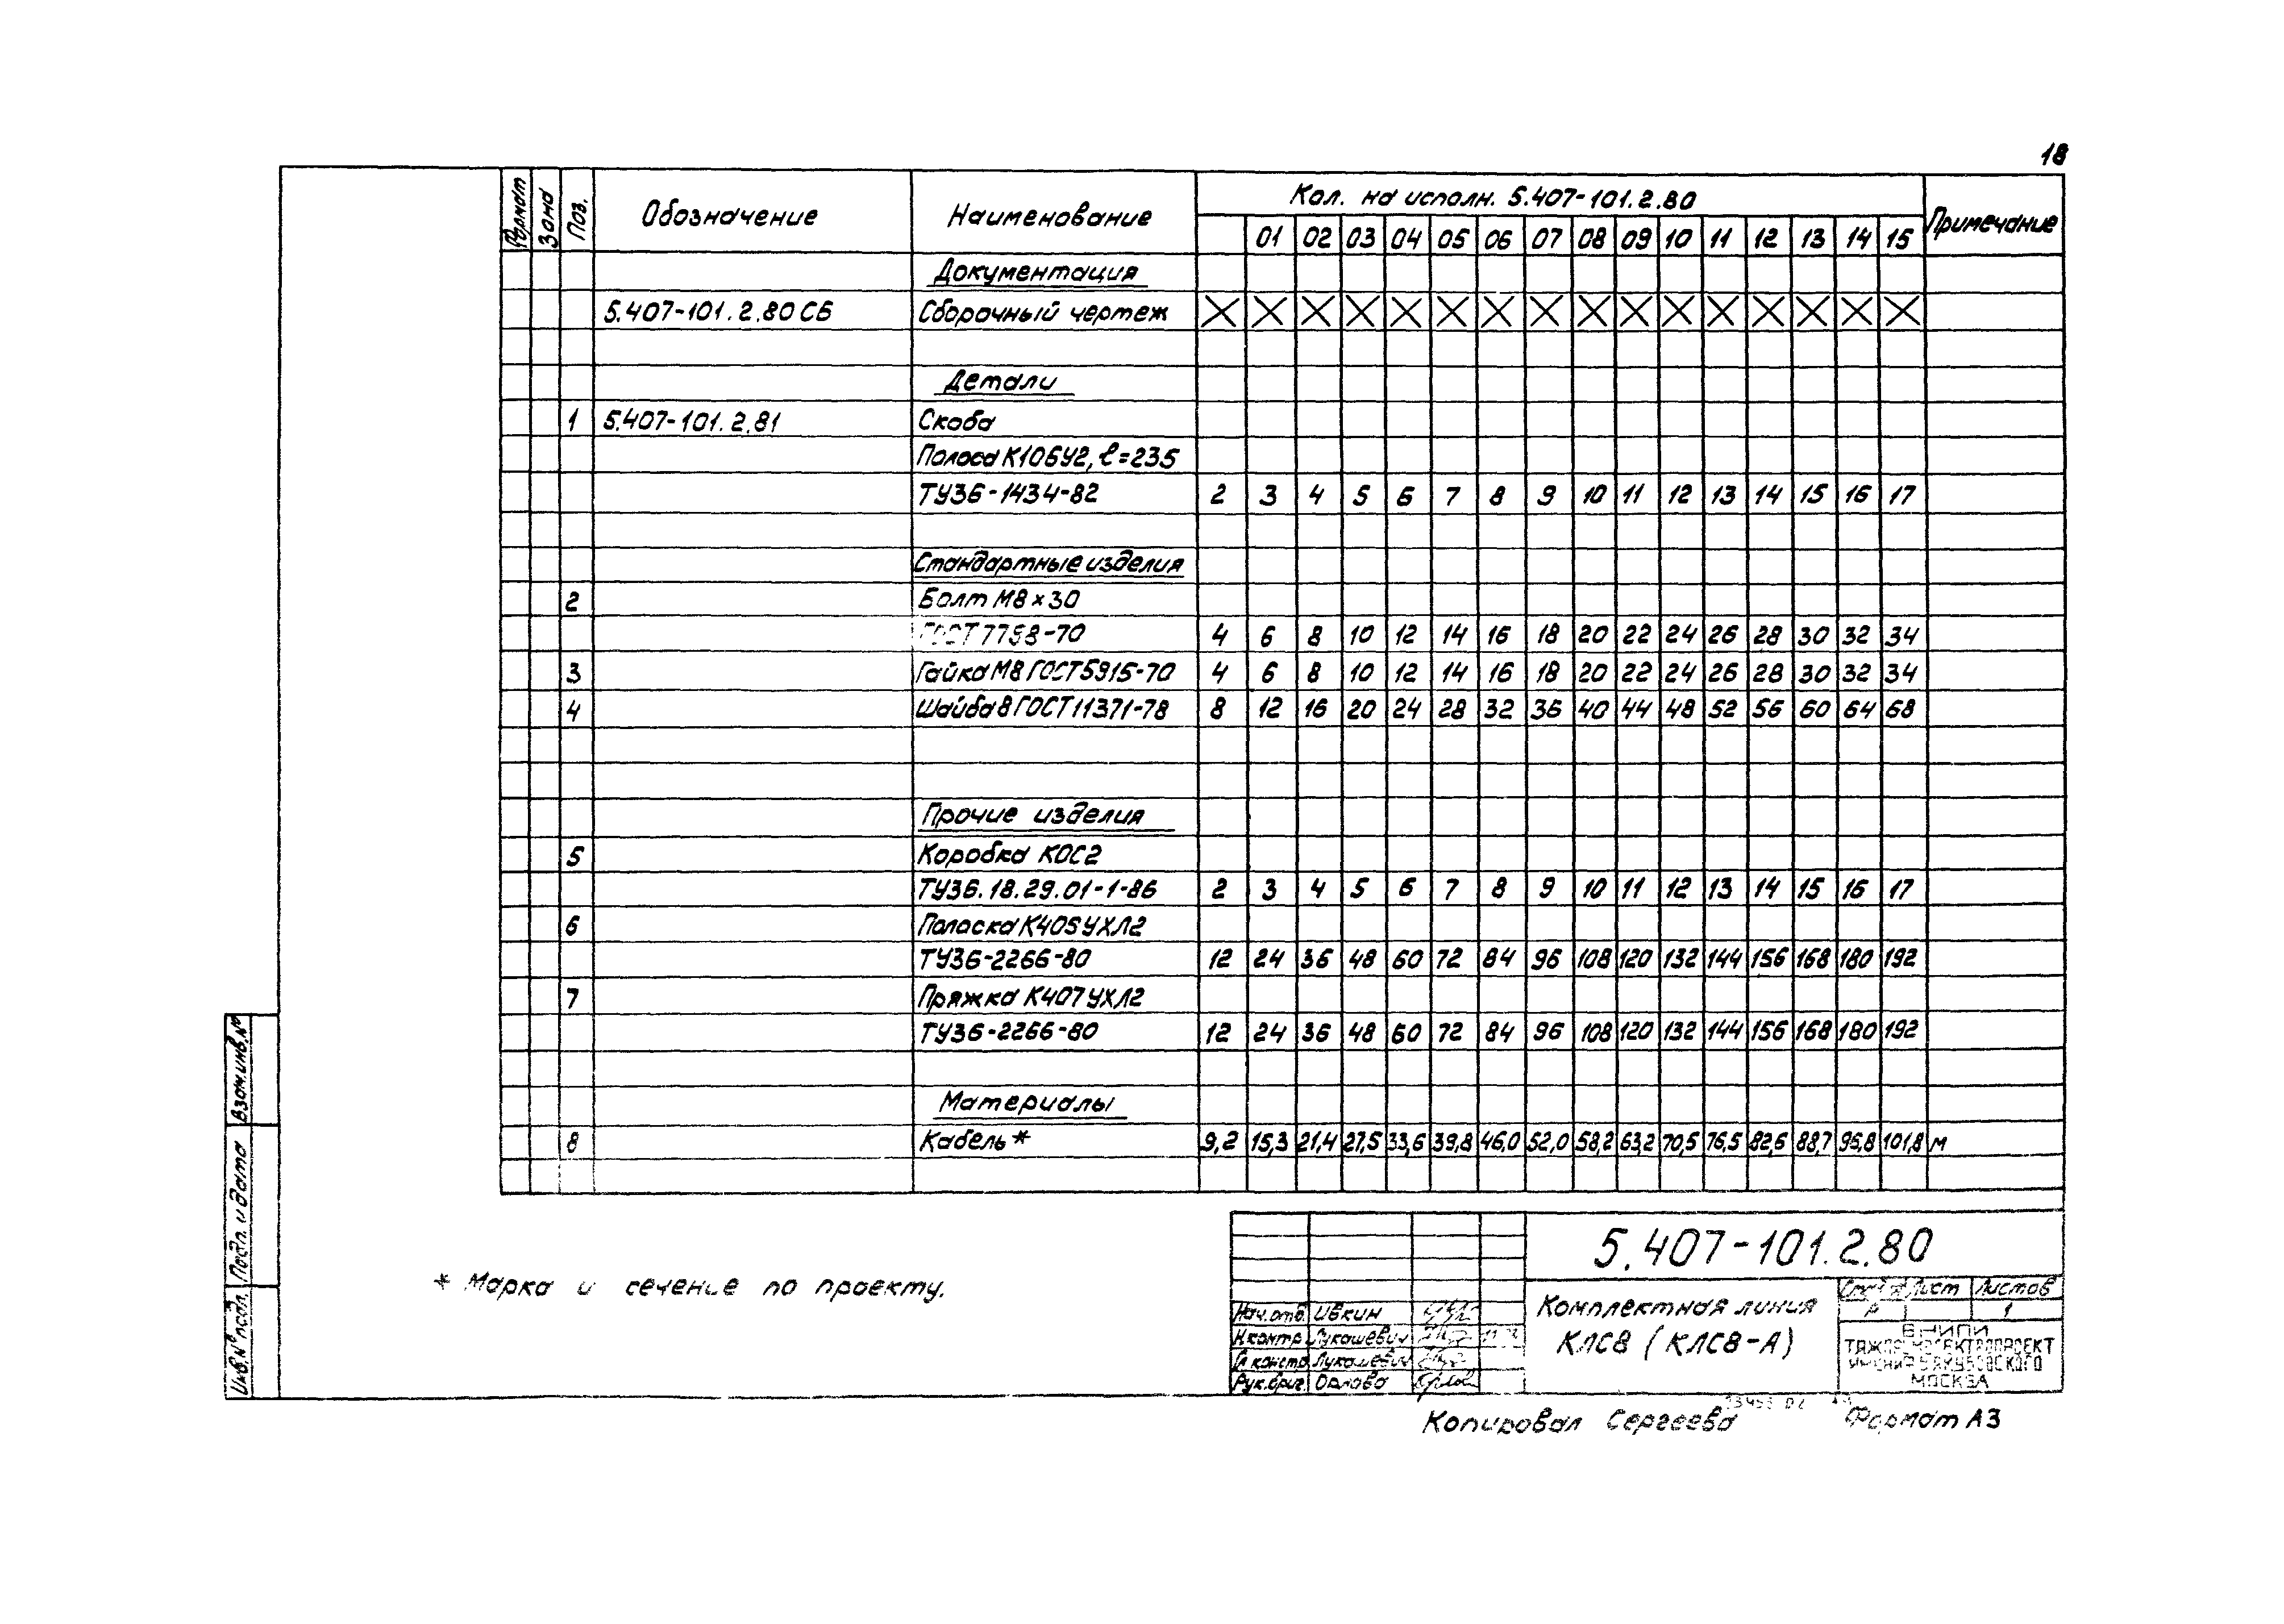 18
Формат Зона Поз. Обозначение Наименование Кол. на исполн. 5.407-101.2.80 Примечание
01 02 03 04 05 06 07 08 09 10 11 12 13 14 15
Документация
5.407-101.2.80 СБ Сборочный чертеж
Детали
1 5.407-101.2.81 Скоба
Полоса К106У2, ℓ=235
ТУ36-1434-82 2 3 4 5 6 7 8 9 10 11 12 13 14 15 16 17
Стандартные изделия
2 Болт М8×30
ГОСТ 7798-70 4 6 8 10 12 14 16 18 20 22 24 26 28 30 32 34
3 Гайка М8 ГОСТ 5915-70 4 6 8 10 12 14 16 18 20 22 24 26 28 30 32 34
4 Шайба 8 ГОСТ 11371-78 8 12 16 20 24 28 32 36 40 44 48 52 56 60 64 68
Прочие изделия
5 Коробка КОС2
ТУ36.18.29.01-1-86 2 3 4 5 6 7 8 9 10 11 12 13 14 15 16 17
6 Полоска К405УХЛ2
ТУ36-2266-80 12 24 36 48 60 72 84 96 108 120 132 144 156 168 180 192
7 Пряжка К407УХЛ2
ТУ36-2266-80 12 24 36 48 60 72 84 96 108 120 132 144 156 168 180 192
Материалы
8 Кабель* 9,2 15,3 21,4 27,5 33,6 39,8 46,0 52,0 58,2 63,2 70,5 76,5 82,6 88,7 96,8 101,8 м
* Марка и сечение по проекту.
5.407-101.2.80
Комплектная линия
КЛС8 (КЛС8-А)
Стадия Лист Листов
Р 1
ВНИПИ
ТЯЖПРОМЭЛЕКТРОПРОЕКТ
ИМЕНИ Ф.Б.ЯКУБОВСКОГО
МОСКВА
Нач.отд. Ивкин
Н.контр. Лукашевич
Гл.констр. Лукашевич
Рук.бриг. Орлова
Взам.инв.№
Подп. и дата
Инв.№ подл.
Копировал Сергеева Формат А3